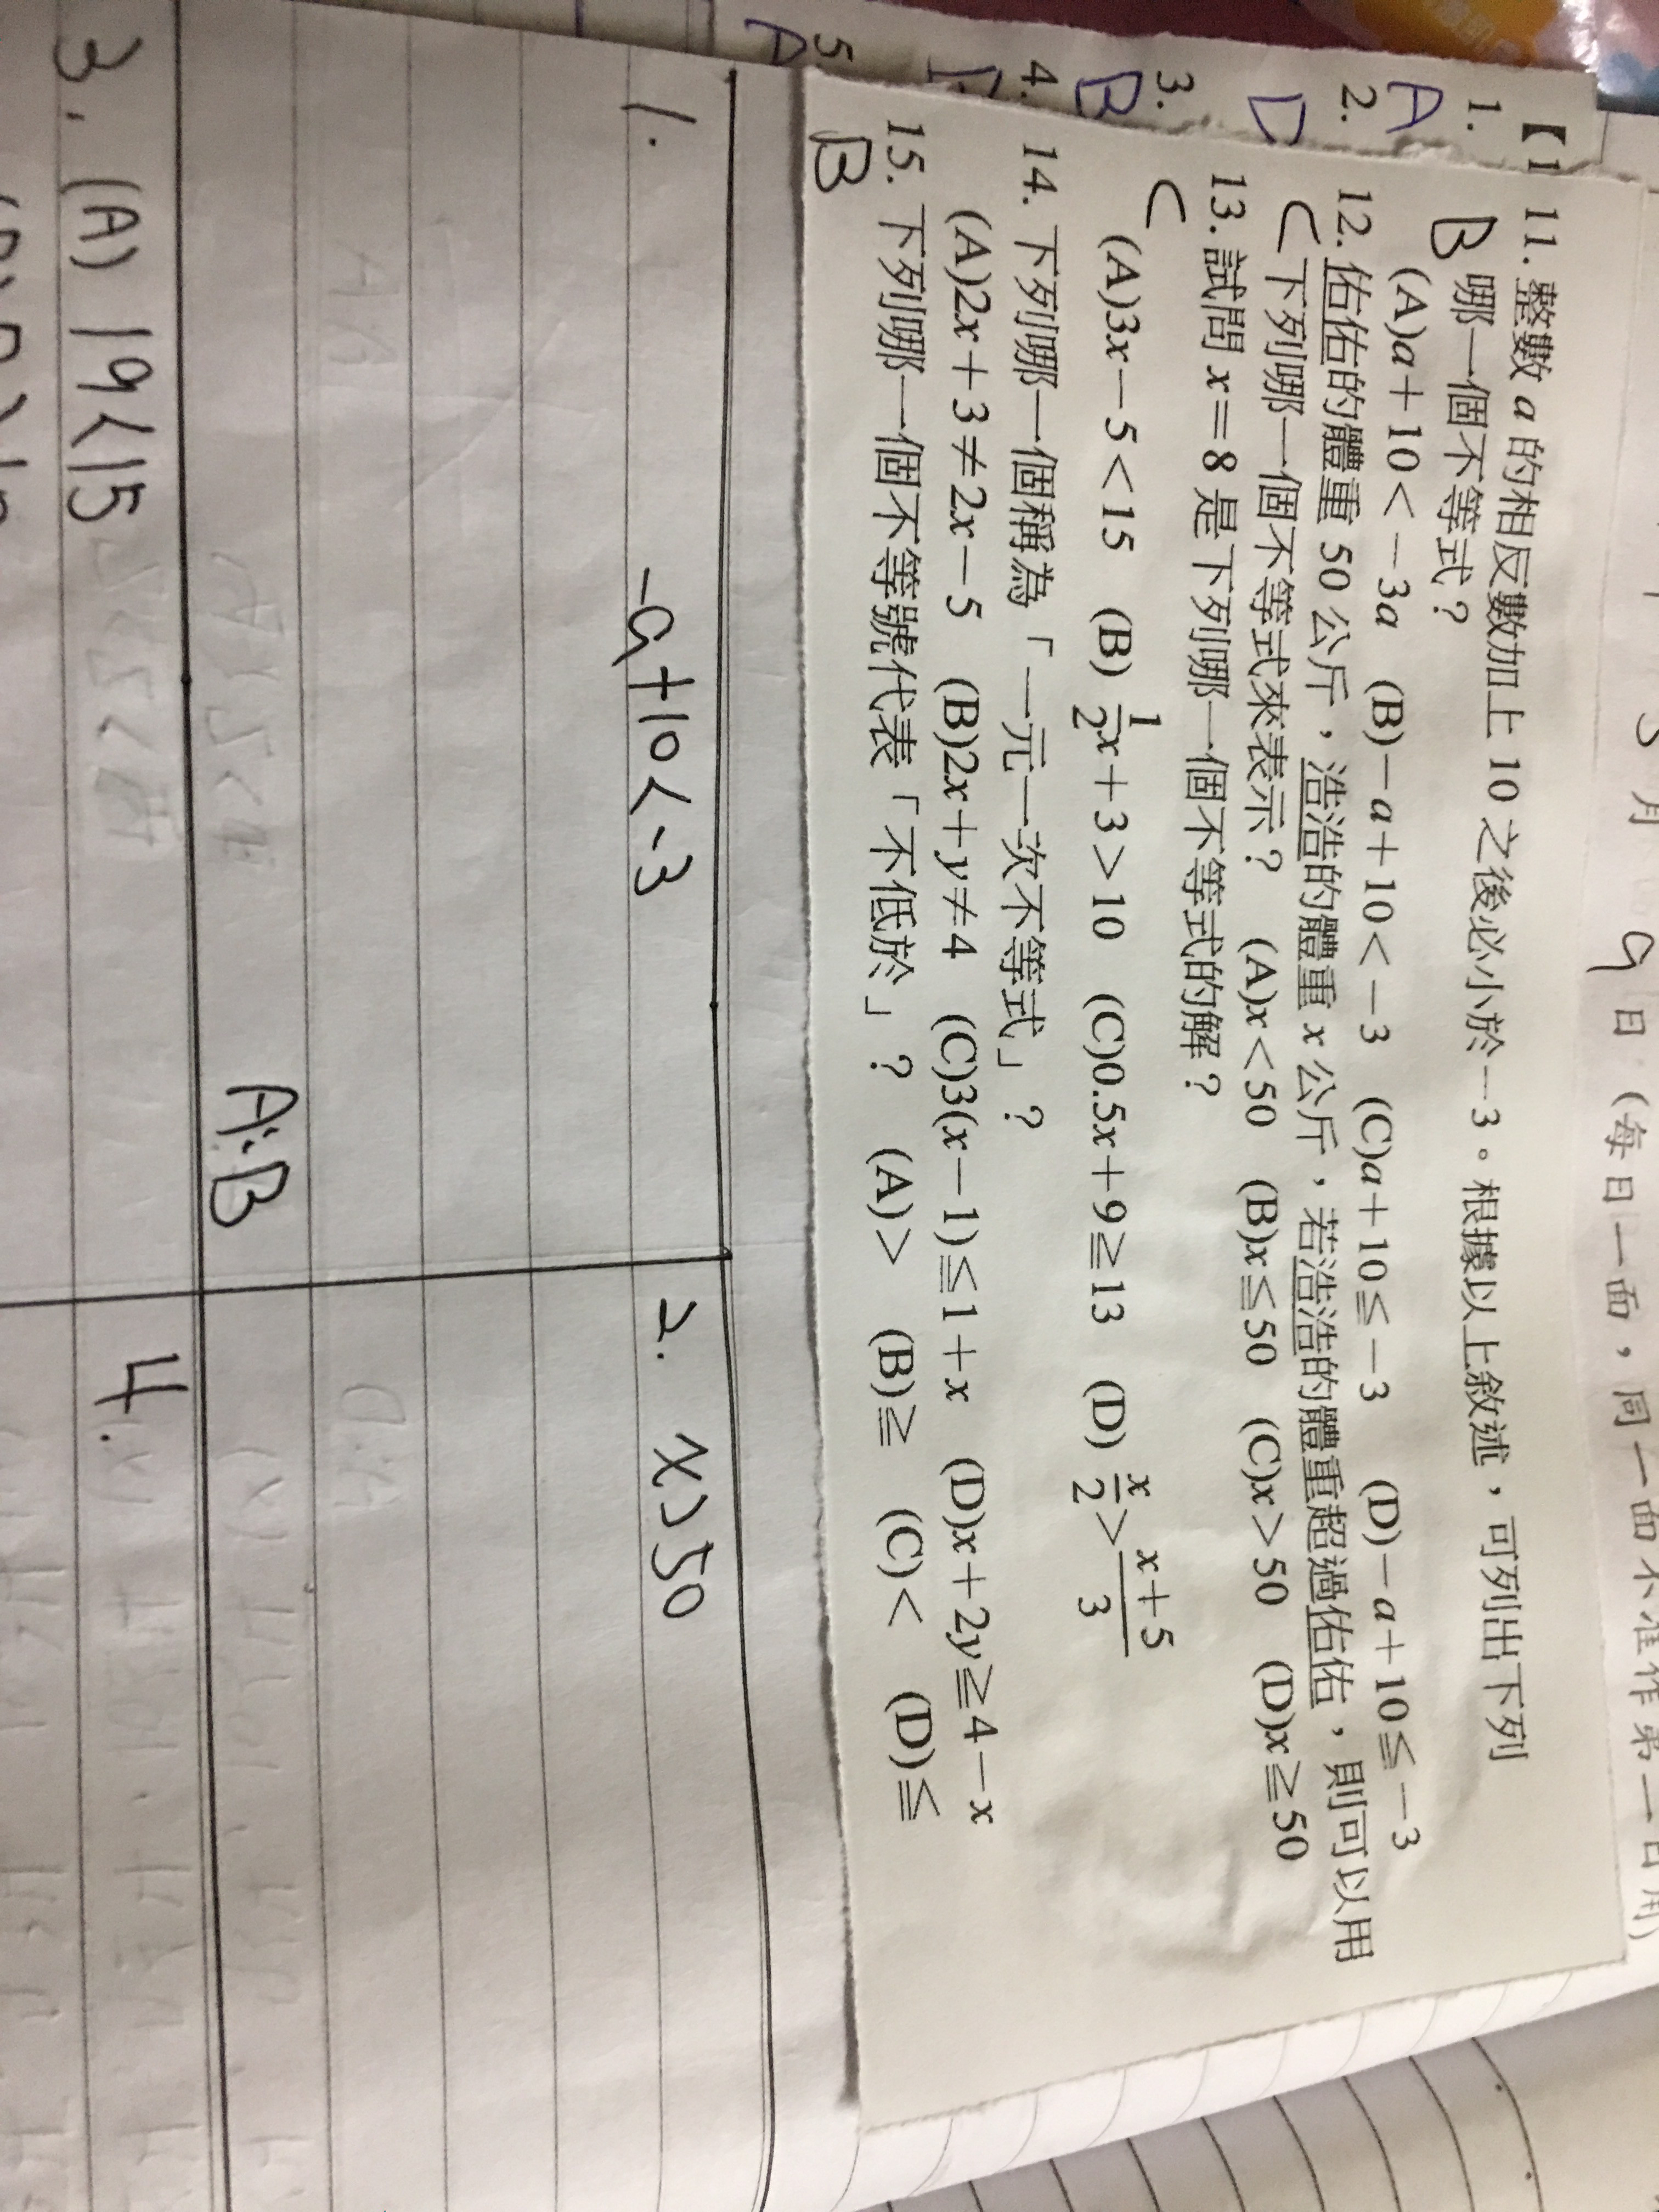 9日(每日一面,同一面不准作第二日用)
【1
1.
A
2.
D
3.
B
4.
5
A
11.整數 a 的相反數加上 10 之後必小於-3。根據以上敘述,可列出下列
B 哪一個不等式?
(A)a+10<-3a (B)-a+10<-3 (C)a+10≦-3 (D)-a+10≦-3
12.佑佑的體重 50 公斤,浩浩的體重 x 公斤,若浩浩的體重超過佑佑,則可以用
C 下列哪一個不等式來表示? (A)x<50 (B)x≦50 (C)x>50 (D)x≧50
13.試問 x=8 是下列哪一個不等式的解?
C
(A)3x-5<15 (B) 1/2x+3>10 (C)0.5x+9≧13 (D) x/2>x+5/3
14.下列哪一個稱為「一元一次不等式」?
(A)2x+3≠2x-5 (B)2x+y≠4 (C)3(x-1)≦1+x (D)x+2y≧4-x
15.下列哪一個不等號代表「不低於」? (A)> (B)≧ (C)< (D)≦
B
1.
-a+10<-3
A:B
2. x>50
3. (A) 19<15
4.